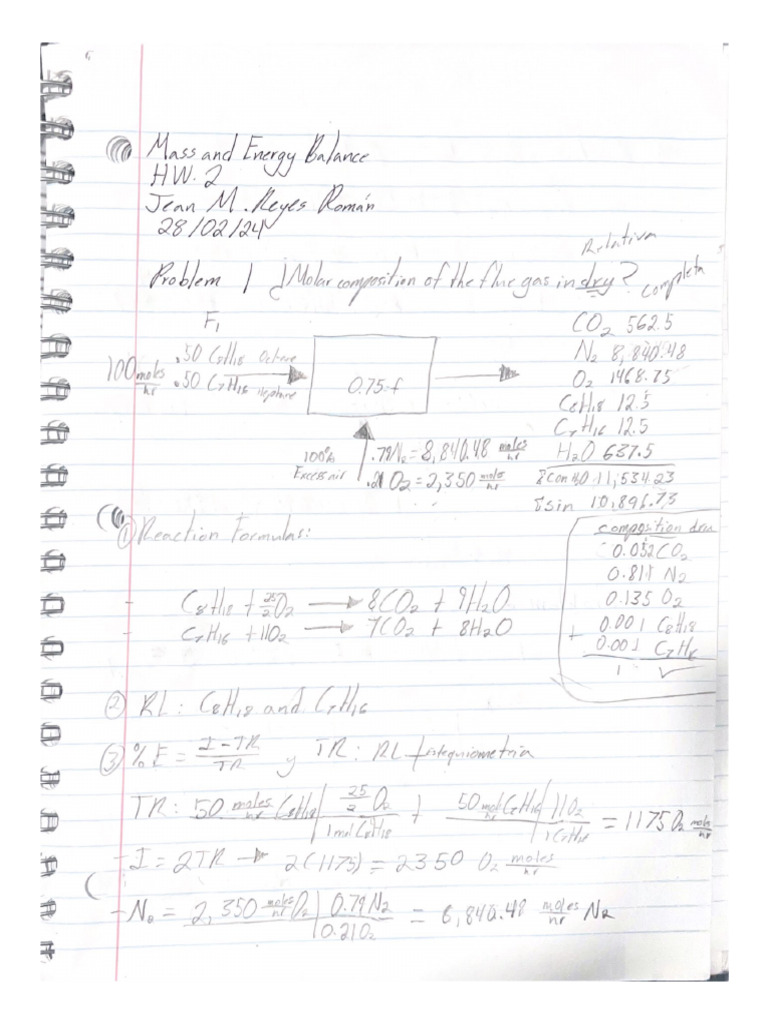 Mass and Energy Balance
HW. 2
Jean M. Reyes Román
28/02/24
Problem 1 ¿Molar composition of the flue gas in dry?
Relativa
completa
F1
100 moles/hr
.50 C8H18 Octane
.50 C7H16 Heptane
0.75=f
100%
Excess air
.79N2=8,840.48 moles/hr
.21O2=2,350 moles/hr
CO2 562.5
N2 8,840.48
O2 1468.75
C8H18 12.5
C7H16 12.5
H2O 637.5
Σcon H2O 11,534.23
Σsin 10,896.73
composition
0.052CO2
0.811 N2
0.135 O2
0.001 C8H18
+ 0.001 C7H16
1 ✓
① Reaction Formulas:
- C8H18 + 25/2 O2 → 8CO2 + 9H2O
- C7H16 + 11O2 → 7CO2 + 8H2O
② RL: C8H18 and C7H16
③ %E = I-TR/TR y TR: RL + istequiometria
TR: 50 moles/hr C8H18 | 25/2 O2 / 1mol C8H18 + 50 mol C7H16 | 11O2 / 1C7H16 = 1175 O2 mols/hr
- I = 2TR → 2(1175) = 2350 O2 moles/hr
- N2 = 2,350 moles/hr O2 | 0.79N2 / 0.21O2 = 8,840.48 moles/hr N2